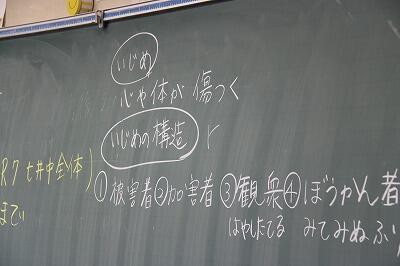 いじめ
心や体が傷つく
いじめの構造
R7 七井中全体)
までい
①被害者②加害者③観衆④ぼうかん者
はやしたてる みてみぬふり